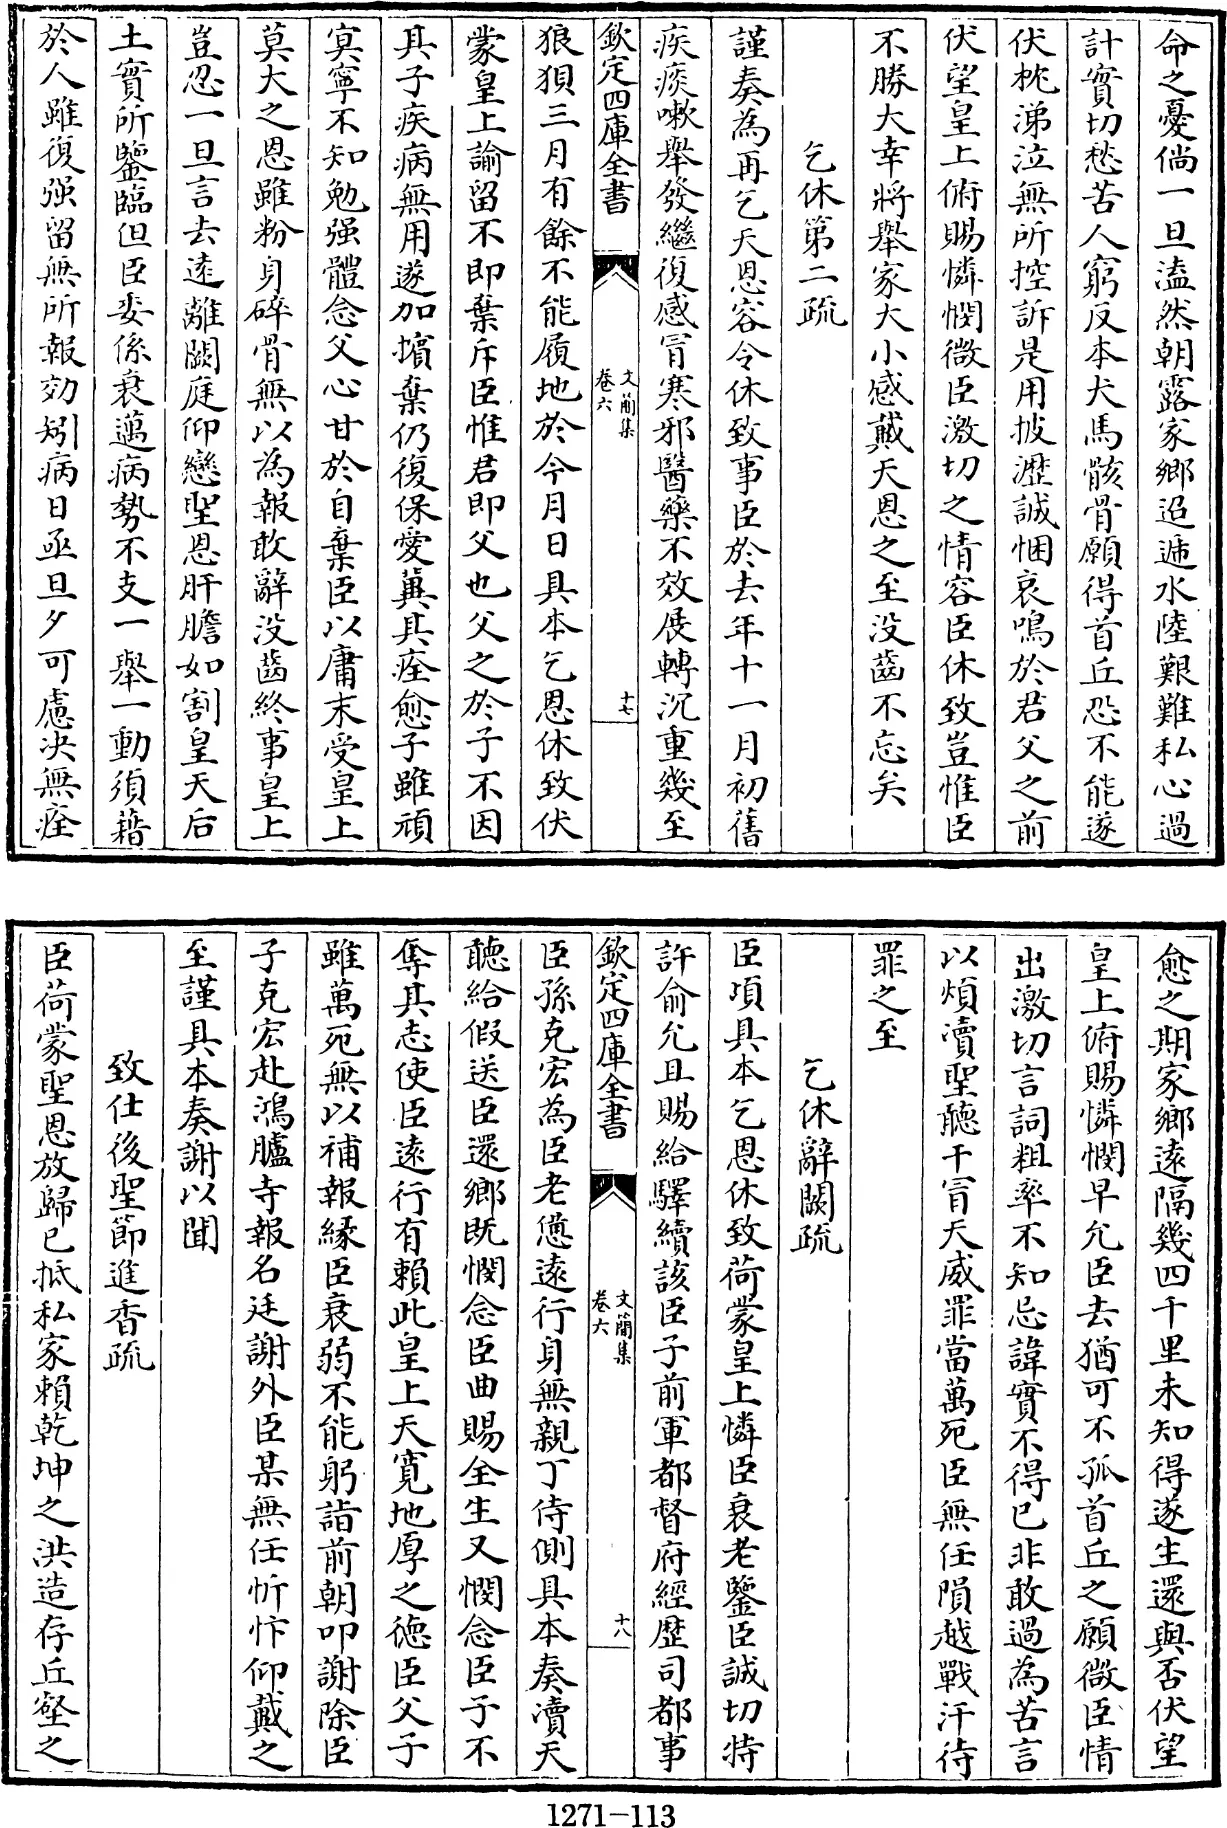 命之憂倘一旦溘然朝露家鄉迢遞水陸艱難私心過
計實切愁苦人窮反本犬馬骸骨願得首丘恐不能遂
伏枕涕泣無所控訴是用披瀝誠悃哀鳴於君父之前
伏望皇上俯賜憐憫微臣激切之情容臣休致豈惟臣
不勝大幸將舉家大小感戴天恩之至没齒不忘矣
乞休第二疏
謹奏為再乞天恩容令休致事臣於去年十一月初舊
疾痰嗽舉發繼復感冒寒邪醫藥不效展轉沉重幾至
欽定四庫全書
文簡集
卷六
十七
狼狽三月有餘不能履地於今月日具本乞恩休致伏
蒙皇上諭留不即棄斥臣惟君即父也父之於子不因
其子疾病無用遂加擯棄仍復保愛冀其痊愈子雖頑
冥寧不知勉强體念父心甘於自棄臣以庸末受皇上
莫大之恩雖粉身碎骨無以為報敢辭没齒終事皇上
豈忍一旦言去遠離闕庭仰戀聖恩肝膽如割皇天后
土實所鑒臨但臣委係衰邁病勢不支一舉一動須藉
於人雖復强留無所報効矧病日亟旦夕可慮決無痊
愈之期家鄉遠隔幾四千里未知得遂生還與否伏望
皇上俯賜憐憫早允臣去猶可不孤首丘之願微臣情
出激切言詞粗率不知忌諱實不得已非敢過為苦言
以煩瀆聖聽干冒天威罪當萬死臣無任隕越戰汗待
罪之至
乞休辭闕疏
臣頃具本乞恩休致荷蒙皇上憐臣衰老鑒臣誠切特
許俞允且賜給驛續該臣子前軍都督府經歴司都事
欽定四庫全書
文簡集
卷六
十八
臣孫克宏為臣老憊遠行身無親丁侍側具本奏瀆天
聽給假送臣還鄉既憫念臣曲賜全生又憫念臣子不
奪其志使臣遠行有賴此皇上天寛地厚之德臣父子
雖萬死無以補報縁臣衰弱不能躬詣前朝叩謝除臣
子克宏赴鴻臚寺報名廷謝外臣某無任忻忭仰戴之
至謹具本奏謝以聞
致仕後聖節進香疏
臣荷蒙聖恩放歸已抵私家賴乾坤之洪造存丘壑之
1271-113